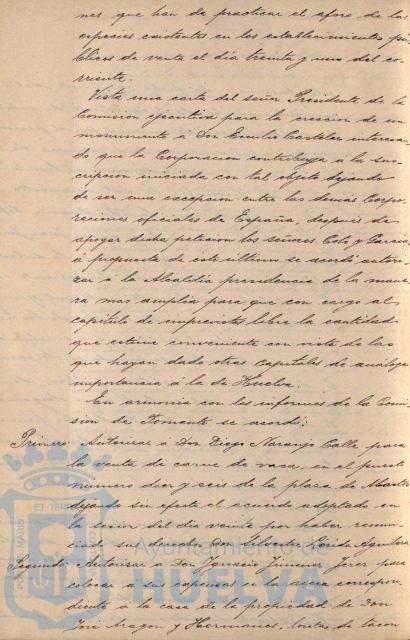 nes que han de practicar el aforo de las
especies existentes en los establecimientos pú
blicos de venta el día treinta y uno del co-
rriente.
Vista una carta del señor Presidente de la
Comision ejecutiva para la creccion de un
monumento á Don Emilio Castelar interesan-
do que la Corporacion contribuya á la sus-
cripcion iniciada con tal objeto dejando
de ser una excepcion entre las demás Corpo-
raciones oficiales de España, después de
apoyar dicha peticion los señores Coto y Garcia
á propuesta de este último se acordó autori-
zar á la Alcaldía presidencia de la mane-
ra mas amplia para que con cargo al
capítulo de imprevistos libre la cantidad
que estime conveniente con vista de las
que hayan dado otras Capitales de análoga
importancia á la de Huelva.
En armonia con los informes de la Comi-
sion de Fomento se acordó:
Primero: Autorizar á Don Diego Naranjo Calle para
la venta de carne de vaca, en el puesto
número diez y seis de la plaza de Abastos
dejando sin efecto el acuerdo adoptado en
la sesion del día veinte por haber renun-
ciado su derecho Don Silvestre Aguilera
Segundo: Autorizar á Don Ignacio Jimenez Jerez para
colocar á sus expensas en la acera correspon-
diente á la casa de la propiedad de Don
José Aragon y Hermanos, losetas de
Ayuntamiento de
HUELVA